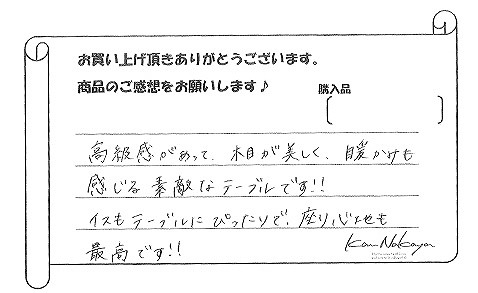 お買い上げ頂きありがとうございます。
商品のご感想をお願いします♪
購入品
高級感があって、木目が美しく、暖かけも
感じる素敵なテーブルです!!
イスもテーブルにぴったりで、座り心地も
最高です!!